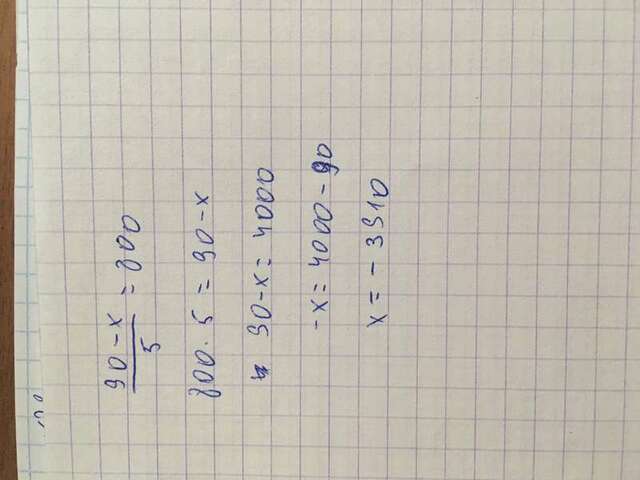 90 - x / 5 = 800
800 · 5 = 90 - x
90 - x = 4000
- x = 4000 - 90
x = - 3910